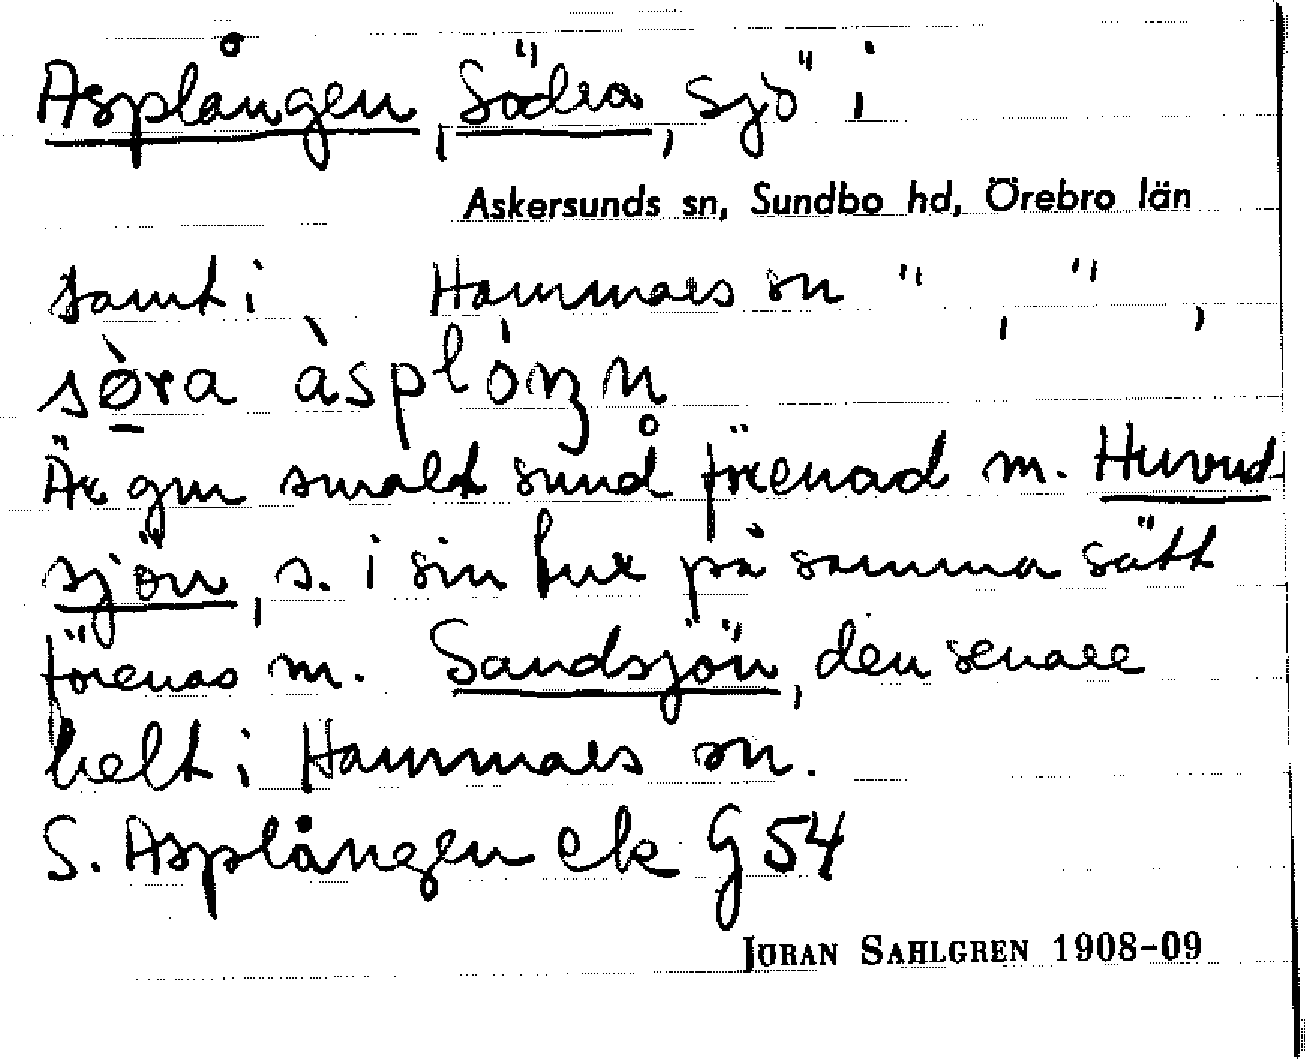 Asplången, Södra, sjö i
Askersunds sn, Sundbo hd, Örebro län
samt i Hammars sn " , " ,
sø̀ra àsplóŋn
Är gm smalt sund förenad m. Huvud-
sjön, s. i sin tur på samma sätt
förenas m. Sandsjön, den senare
helt i Hammars sn.
S. Asplången ek G 54
JÖRAN SAHLGREN 1908-09